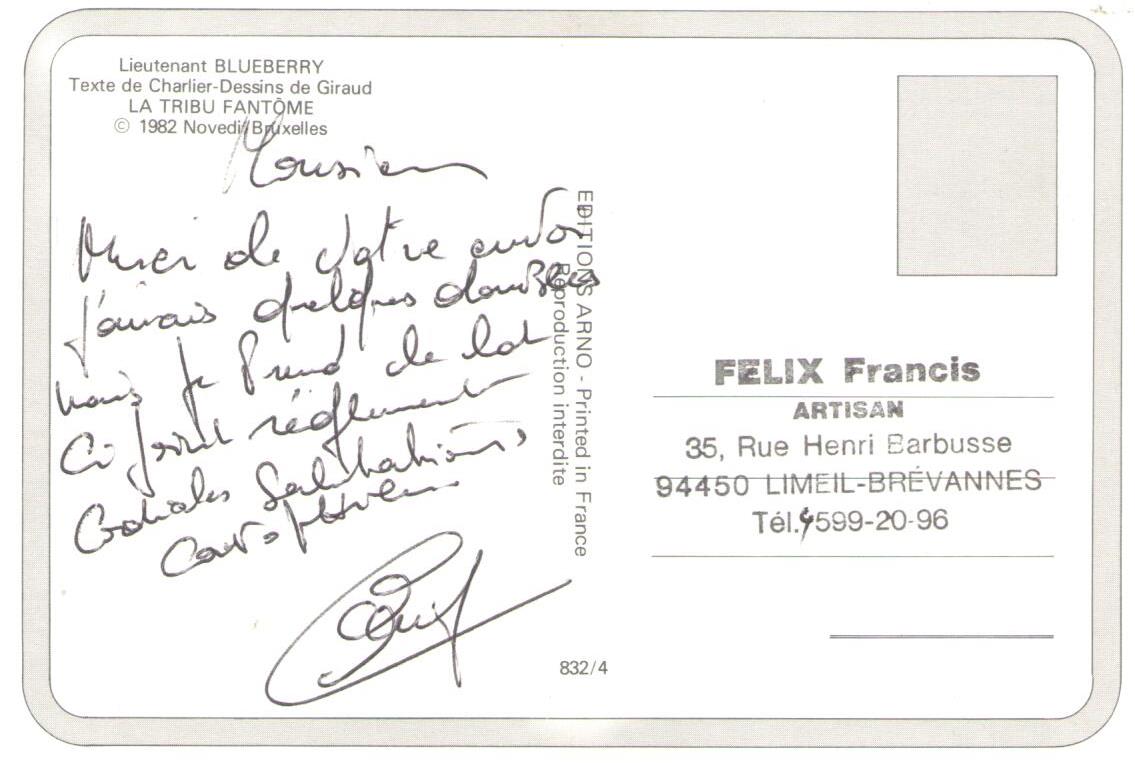 Lieutenant BLUEBERRY
Texte de Charlier-Dessins de Giraud
LA TRIBU FANTÔME
© 1982 Novedi/Bruxelles
Monsieur
Merci de votre envoi
j'avais quelques doubles
mais je prend de lot
Ci joint réglement
Cordiales Salutations
Cartophiles
EDITIONS ARNO - Printed in France
Reproduction interdite
832/4
FELIX Francis
ARTISAN
35, Rue Henri Barbusse
94450 LIMEIL-BRÉVANNES
Tél. 4599-20-96